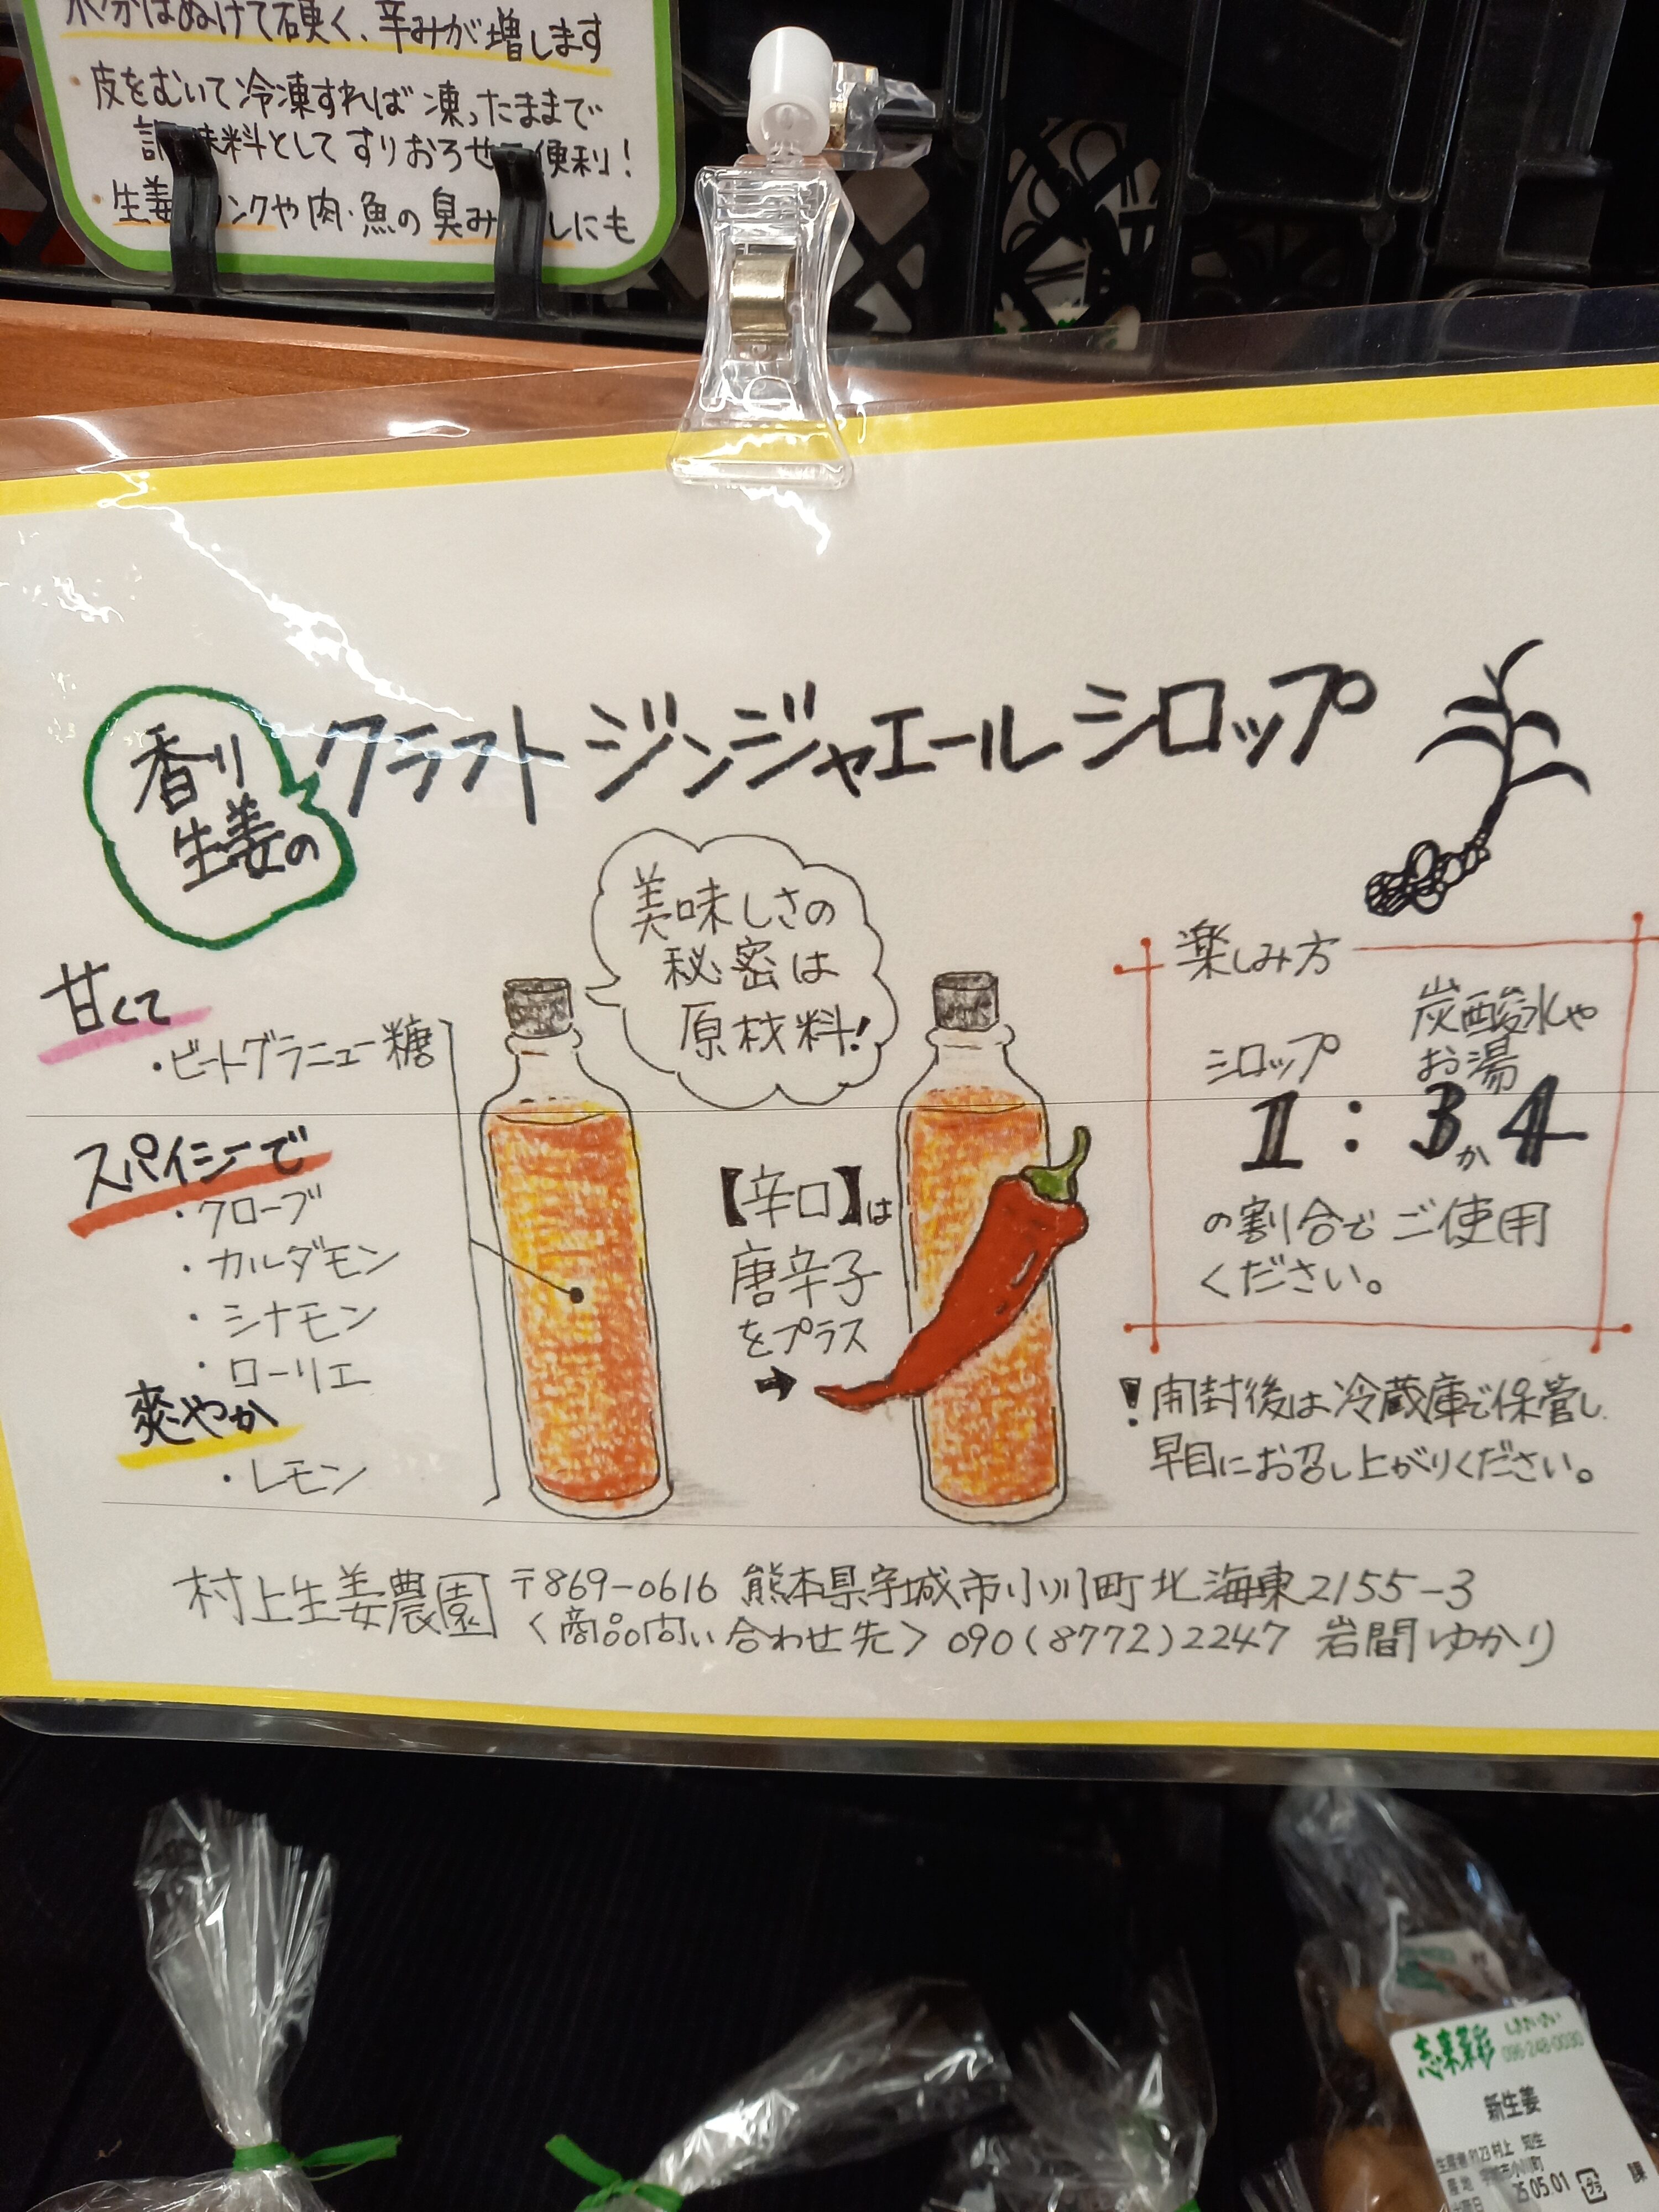 水分はぬけて硬く、辛みが増します
・皮をむいて冷凍すれば凍ったままで
味料としてすりおろせ 便利！
・生姜 リンクや肉・魚の臭み しにも
香り
生姜の
クラフトジンジャエールシロップ
美味しさの
秘密は
原材料！
甘くて
・ビートグラニュー糖
スパイシーで
・クローブ
・カルダモン
・シナモン
・ローリエ
爽やか
・レモン
【辛口】は
唐辛子
をプラス
→
楽しみ方
シロップ 炭酸水や
お湯
1：3か4
の割合でご使用
ください。
！開封後は冷蔵庫で保管し
早目にお召し上がりください。
村上生姜農園 〒869-0616 熊本県宇城市小川町北海東2155-3
〈商品問い合わせ先〉090(8772)2247 岩間ゆかり
しきさいさい
志来菜彩 096-248-0030
新生姜
生産者 9123 村上 知生
産地 宇城市小川町
25.05.01